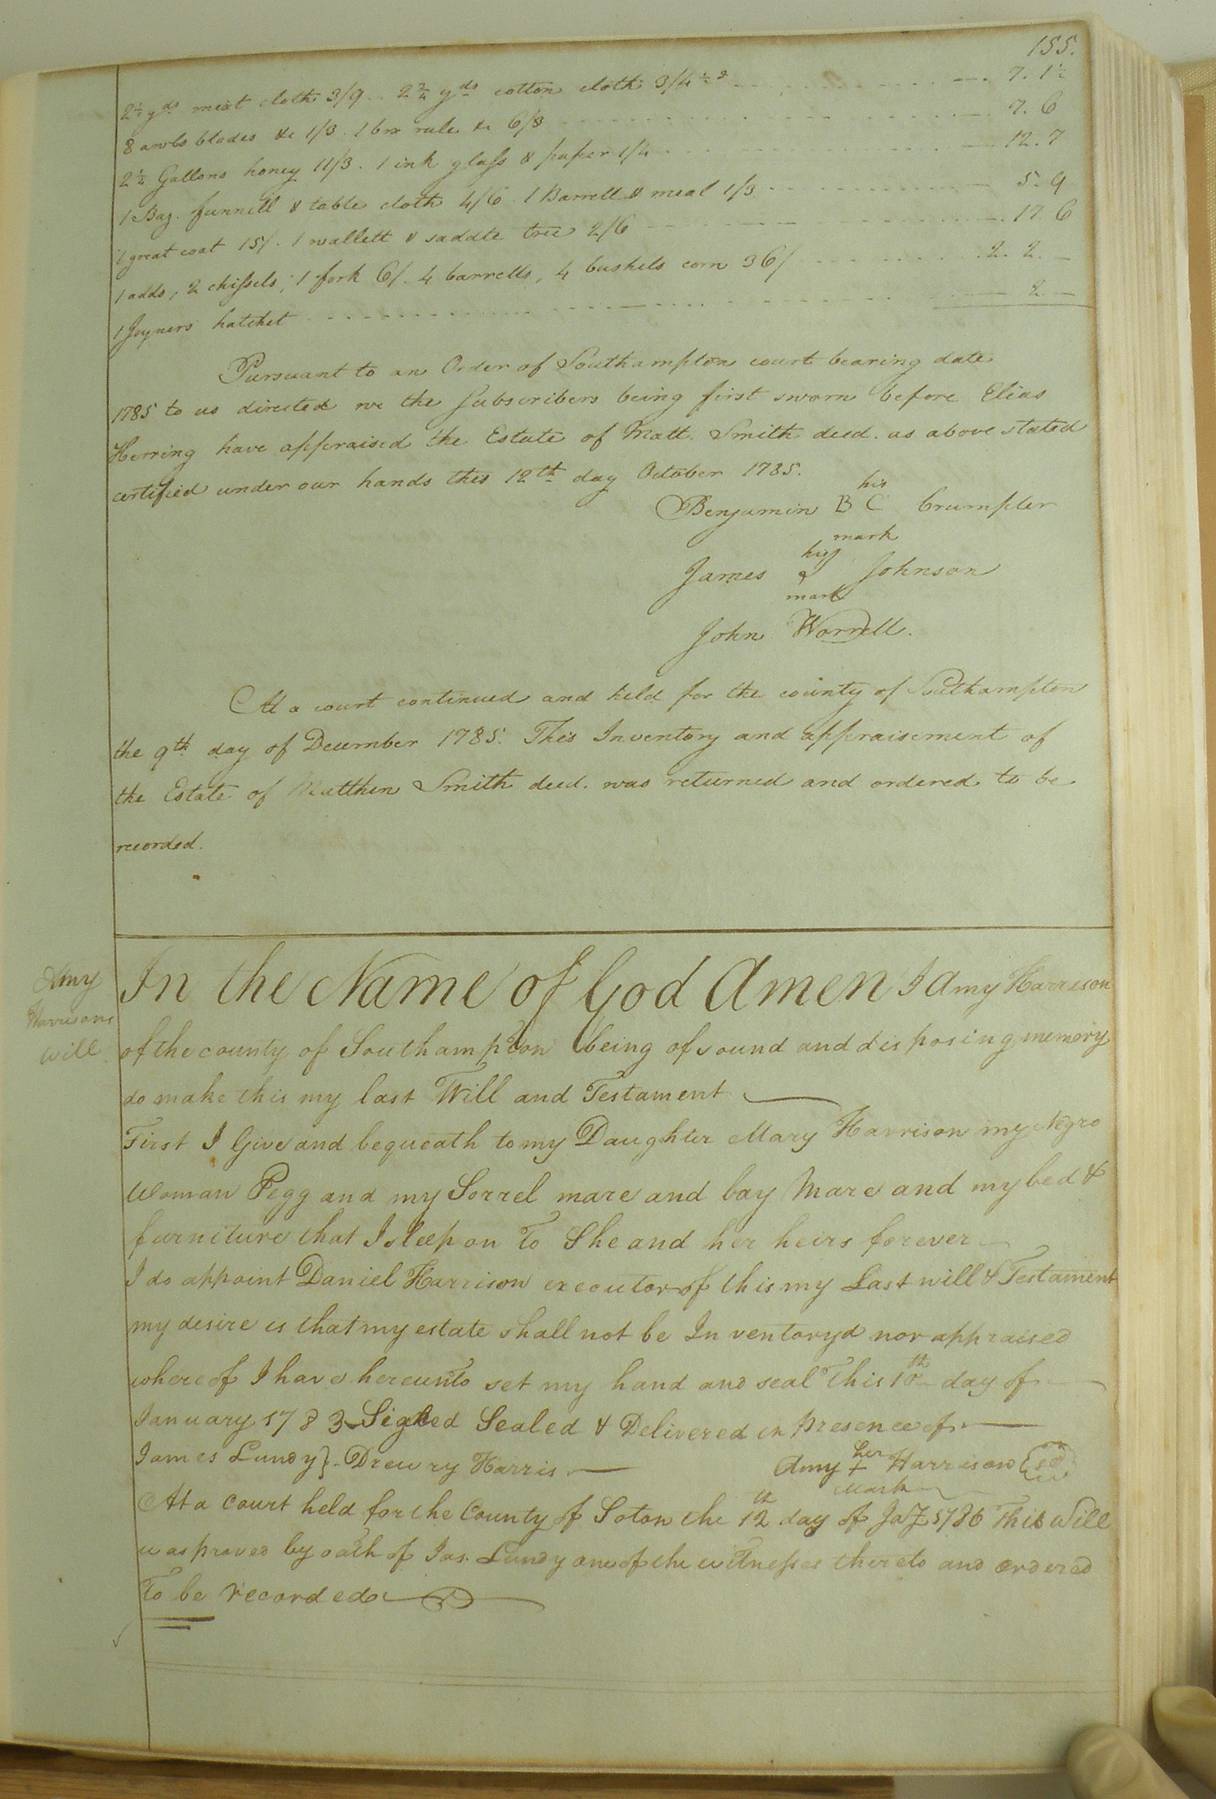 155.
2½ yds meat cloth 3/9 .. 2¾ yds cotton cloth 3/4½ - 7. 1½
8 awls blades &c 1/3. 1 box rule &c 6/3 - 7. 6
2½ Gallons honey 11/3. 1 ink glass & paper 1/4 - 12. 7
1 Bag. funnill & table cloth 4/6 1 Barrell & meal 1/3 - 5. 9
1 great coat 15/. 1 wallett & saddle tree 2/6 - 17. 6
1 adds, 2 chissels, 1 fork 6/. 4 barrells, 4 bushels corn 36/ - 2. 2. -
1 Joyners hatchet - 2 -
Pursuant to an Order of Southampton court bearing date
1785 to us directed we the subscribers being first sworn before Elias
Herring have appraised the Estate of Matt. Smith decd. as above stated
certified under our hands this 12th day October 1785.
Benjamin B C Crumpler
his
mark
James Johnson
his
mark
John Worrell.
At a court continued and held for the county of Southampton
the 9th day of December 1785. This Inventory and appraisement of
the Estate of Matthew Smith decd. was returned and ordered to be
recorded.
Amy
Harrisons
Will
In the Name of God Amen I Amy Harrison
of the county of Southampton being of sound and disposing memory
do make this my last Will and Testament
First I Give and bequeath to my Daughter Mary Harrison my Negro
Woman Pegg and my Sorrel mare and bay Mare and my bed &
furniture that I sleep on To She and her heirs forever
I do appoint Daniel Harrison executor of this my Last will & Testament
my desire is that my estate shall not be Inventoryd nor appraised
whereof I have hereunto set my hand and seal This 10th day of
January 1783 Signed Sealed & Delivered in presence of
James Lundy }. Drewry Harris
Amy + Harrison
her
Mark
At a Court held for the County of Soton the 12th day of Jay 1786 This Will
was proved by oath of Jas. Lundy one of the witnesses thereto and ordered
To be recorded